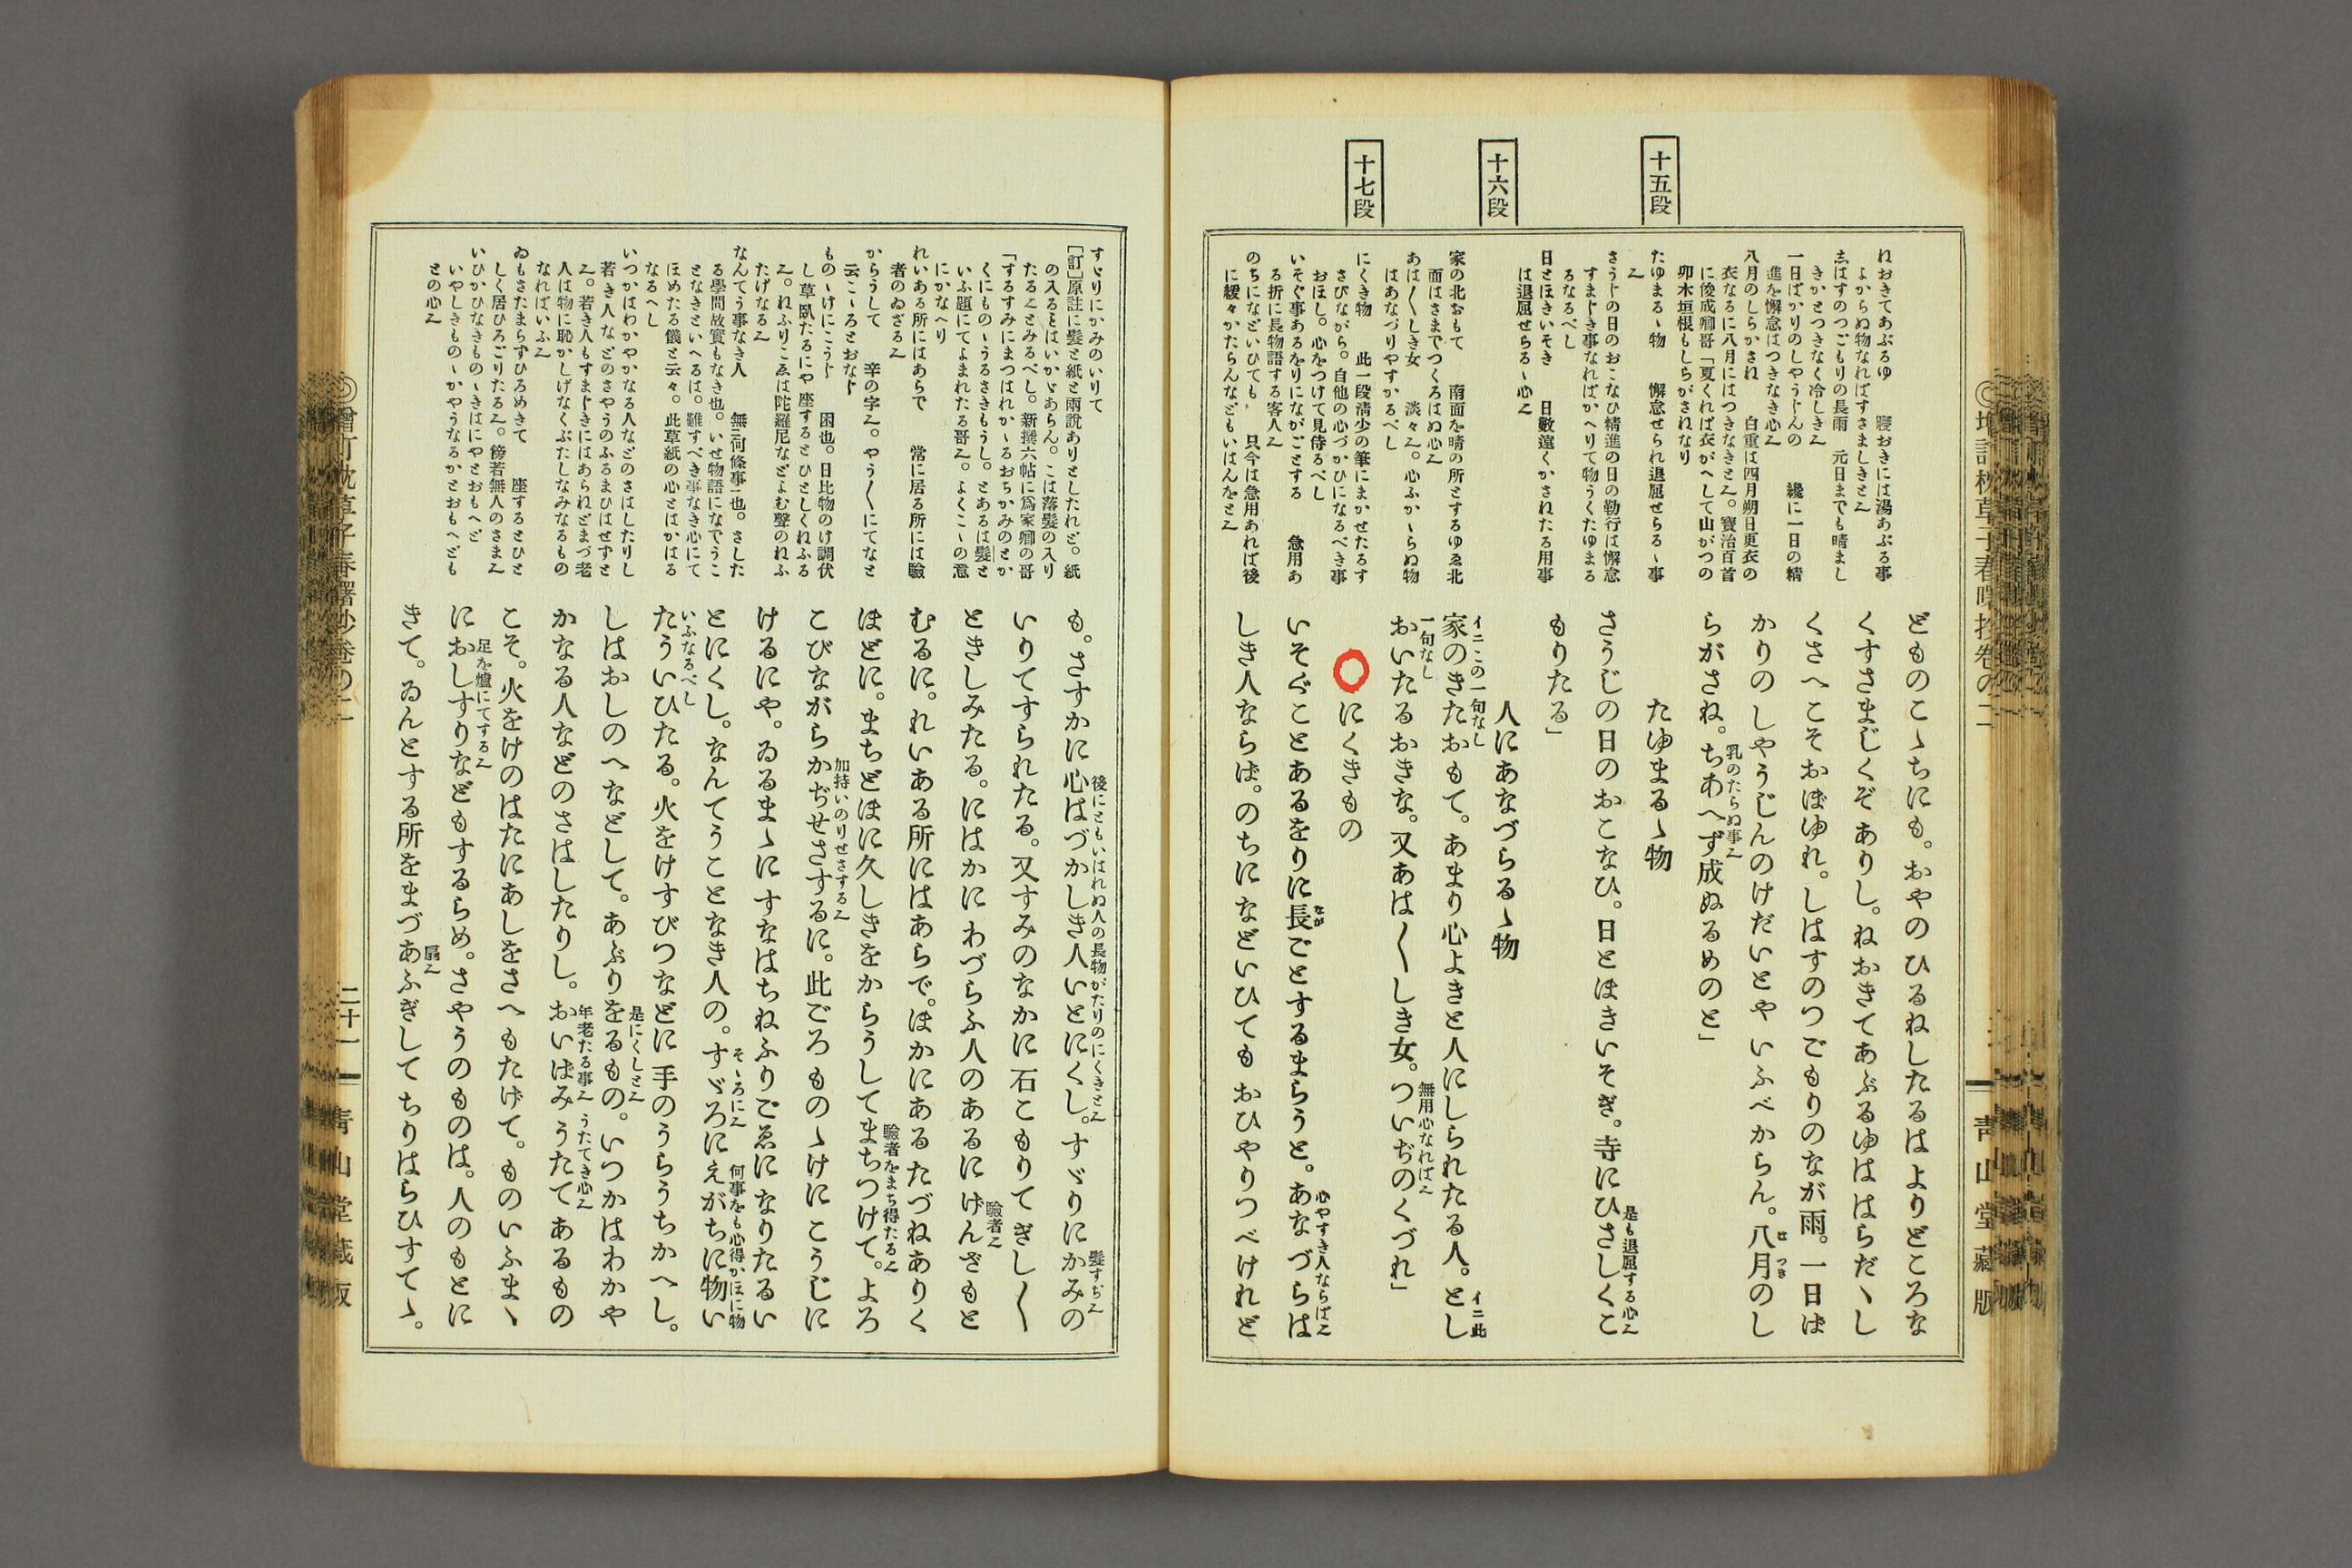 十五段
十六段
十七段
ねおきてあぶるゆ　寢おきには湯あぶる事
よからぬ物なればすさましきと也
志はすのつごもりの長雨　元日までも晴まし
きかとつきなく冷しき也
一日ばかりのしやうじんの　纔に一日の精
進を懈怠はつきなき心也
八月のしらかさね　白重は四月朔日更衣の
衣なるに八月にはつきなきと也。寶治百首
に俊成卿哥「夏くれば衣がへして山がつの
卯木垣根もしらがさねなり
たゆまるゝ物　懈怠せられ退屈せらるゝ事
也
さうじの日のおこなひ精進の日の勤行は懈怠
すまじき事なればかへりて物うくたゆまる
るなるべし
日とほきいそき　日數遠くかされたる用事
は退屈せらるゝ心也
家の北おもて　南面を晴の所とするゆゑ北
面はさまでつくろはぬ心也
あは〳〵しき女　淡々也。心ふかゝらぬ物
はあなづりやすかるべし
にくき物　此一段清少の筆にまかせたるす
さびながら。自他の心づかひになるべき事
おほし。心をつけて見侍るべし
いそぐ事あるをりにながごとする　急用あ
る折に長物語する客人也
のちになどいひても　只今は急用あれば後
に緩々かたらんなどもいはんをと也
どものこゝちにも。おやのひるねしたるはよりどころな
くすさまじくぞありし。ねおきてあぶるゆははらだゝし
くさへこそおぼゆれ。しはすのつごもりのなが雨。一日ば
かりのしやうじんのけだいとやいふべからん。八月のし
らがさね。ちあへず成ぬるめのと」
乳のたらぬ事也
たゆまるゝ物
さうじの日のおこなひ。日とほきいそぎ。寺にひさしくこ
是も退屈する心也
もりたる」
人にあなづらるゝ物
家のきたおもて。あまり心よきと人にしられたる人。とし
イニこの一句なし
イニ此
一句なし
おいたるおきな。又あは〳〵しき女。ついぢのくづれ」
無用心なれば也
にくきもの
いそぐことあるをりに長ごとするまらうと。あなづらは
なが
心やすき人ならば也
しき人ならば。のちになどいひてもおひやりつべけれど
靑山堂藏版
すゞりにかみのいりて
［訂］原註に髮と紙と兩說ありとしたれど。紙
の入るとはいかゞあらん。こは落髮の入り
たるとみるべし。新撰六帖に爲家卿の哥
「するすみにまつはれかゝるおちかみのとか
くにものゝうるさきもうし。とあるは髮と
いふ題にてよまれたる哥也。よくこゝの意
にかなへり
れいある所にはあらで　常に居る所には驗
者のゐざる也
からうして　辛の字也。やう〳〵にてなと
云こゝろとおなじ
ものゝけにこうじ　困也。日比物のけ調伏
し草臥たるにや座するとひとしくねふる
也。ねふりこゑは陀羅尼などよむ聲のねふ
たげなる也
なんてう事なき人　無何條事也。さした
る學問故實もなき也。いせ物語になでうこ
となきといへるは。難すべき事なき心にて
ほめたる儀と云々。此草紙の心とはかはる
なるへし
いつかはわかやかなる人などのさはしたりし
若き人などのさやうのふるまひはせずと
也。若き人もすまじきにはあられどまづ老
人は物に恥かしげなくぶたしなみなるもの
なればいふ也
ゐもさたまらずひろめきて　座するとひと
しく居ひろごりたる也。傍若無人のさま也
いひかひなきものゝきはにやとおもへど
いやしきものゝかやうなるかとおもへども
との心也
も。さすかに心はづかしき人いとにくし。すゞりにかみの
後にともいはれぬ人の長物がたりのにくきと也
髮すぢ也
いりてすられたる。又すみのなかに石こもりてぎし〳〵
ときしみたる。にはかにわづらふ人のあるにげんざもと
驗者也
むるに。れいある所にはあらで。ほかにあるたづねありく
ほどに。まちどほに久しきをからうしてまちつけて。よろ
驗者をまち得たる也
こびながらかぢせさするに。此ごろものゝけにこうじに
加持いのりせさする也
けるにや。ゐるまゝにすなはちねふりごゑになりたるい
とにくし。なんてうことなき人の。すゞろにえがちに物い
そゝろに也
何事をも心得かほに物
いふなるべし
たういひたる。火をけすびつなどに手のうらうちかへし。
しはおしのへなどして。あぶりをるもの。いつかはわかや
是にくしと也
かなる人などのさはしたりし。おいばみうたてあるもの
年老たる事也
うたてき心也
こそ。火をけのはたにあしをさへもたげて。ものいふまゝ
におしすりなどもするらめ。さやうのものは。人のもとに
足を爐にてする也
きて。ゐんとする所をまづあふぎしてちりはらひすてゝ。
扇也
二十一